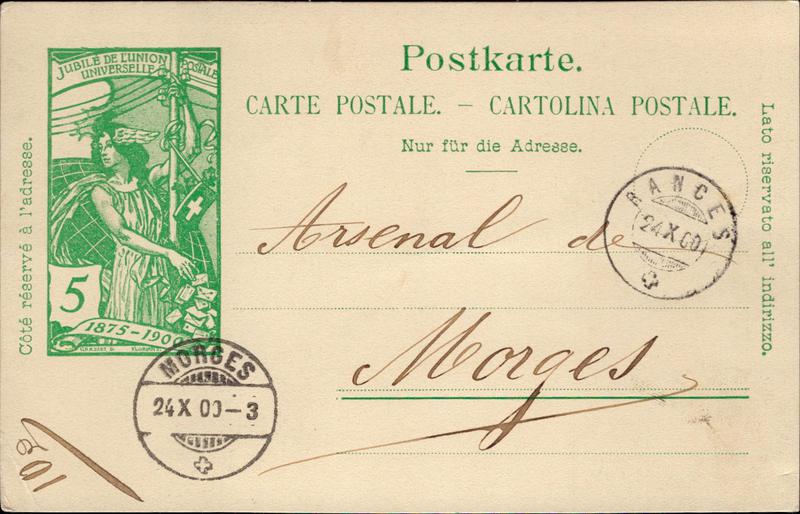 JUBILÉ DE L'UNION POSTALE
UNIVERSELLE
5
1875-1900
Côté réservé à l'adresse.
Postkarte.
CARTE POSTALE. – CARTOLINA POSTALE.
Nur für die Adresse.
Lato riservato all' indirizzo.
RANCES
24 X 00
Arsenal de
Morges
MORGES
24 X 00-3